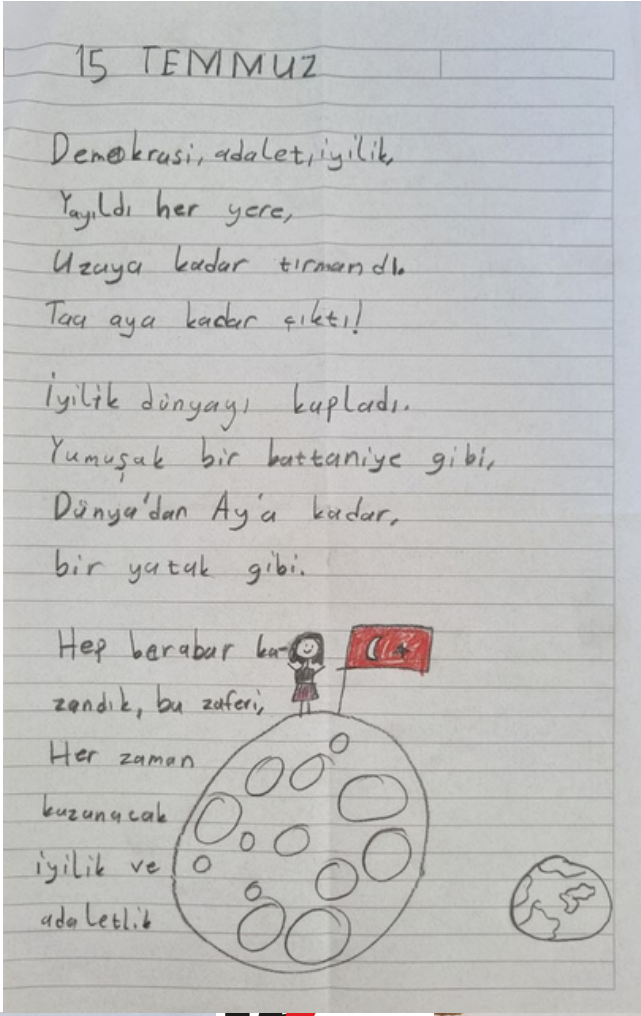 15 TEMMUZ
Demokrasi, adalet, iyilik,
Yayıldı her yere,
Uzaya kadar tırmandı.
Taa aya kadar çıktı!
İyilik dünyayı kapladı.
Yumuşak bir battaniye gibi,
Dünya'dan Ay'a kadar,
bir yatak gibi.
Hep berabar ka-
zandık, bu zaferi,
Her zaman
kazanacak
iyilik ve
adaletlik